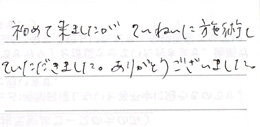 初めて来ましたが、ていねいに施術し
ていただきました。ありがとうございました。